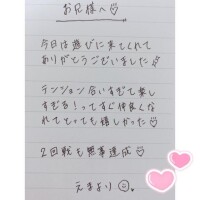 お兄様へ♡
今日は遊びに来てくれて
ありがとうございました♡
テンション合いすぎて楽し
すぎる！ってすぐ仲良くな
れてとっても嬉しかった♡
2回戦も無事達成♡
えまより☺。